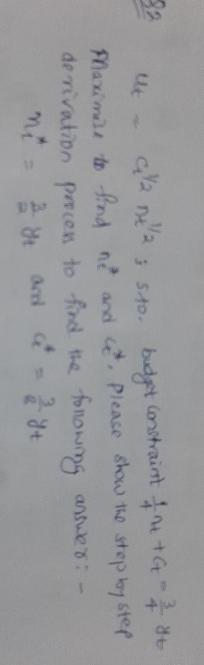 Q2
Ut = Ct^1/2 nt^1/2 ; s.to. budget constraint 1/4 nt + Ct = 3/4 yt
Maximize to find nt* and Ct*. Please show the step by step
derivation process to find the following answer:-
nt* = 3/2 yt and Ct* = 3/8 yt